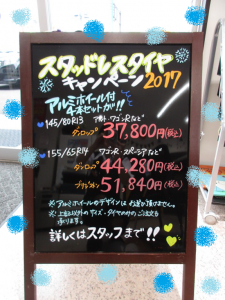 スタッドレスタイヤ
キャンペーン2017
アルミホイール付
4本セットが!!
145/80R13 ワゴンRなど
ダンロップ 37,800円(税込)
155/65R14 ワゴンR・スペーシアなど
ダンロップ 44,280円(税込)
ブリヂストン 51,840円(税込)
※アルミホイールのデザインはお選び頂けません。
※上記以外のサイズ・タイヤのみのご注文も
承ります。
詳しくはスタッフまで!!